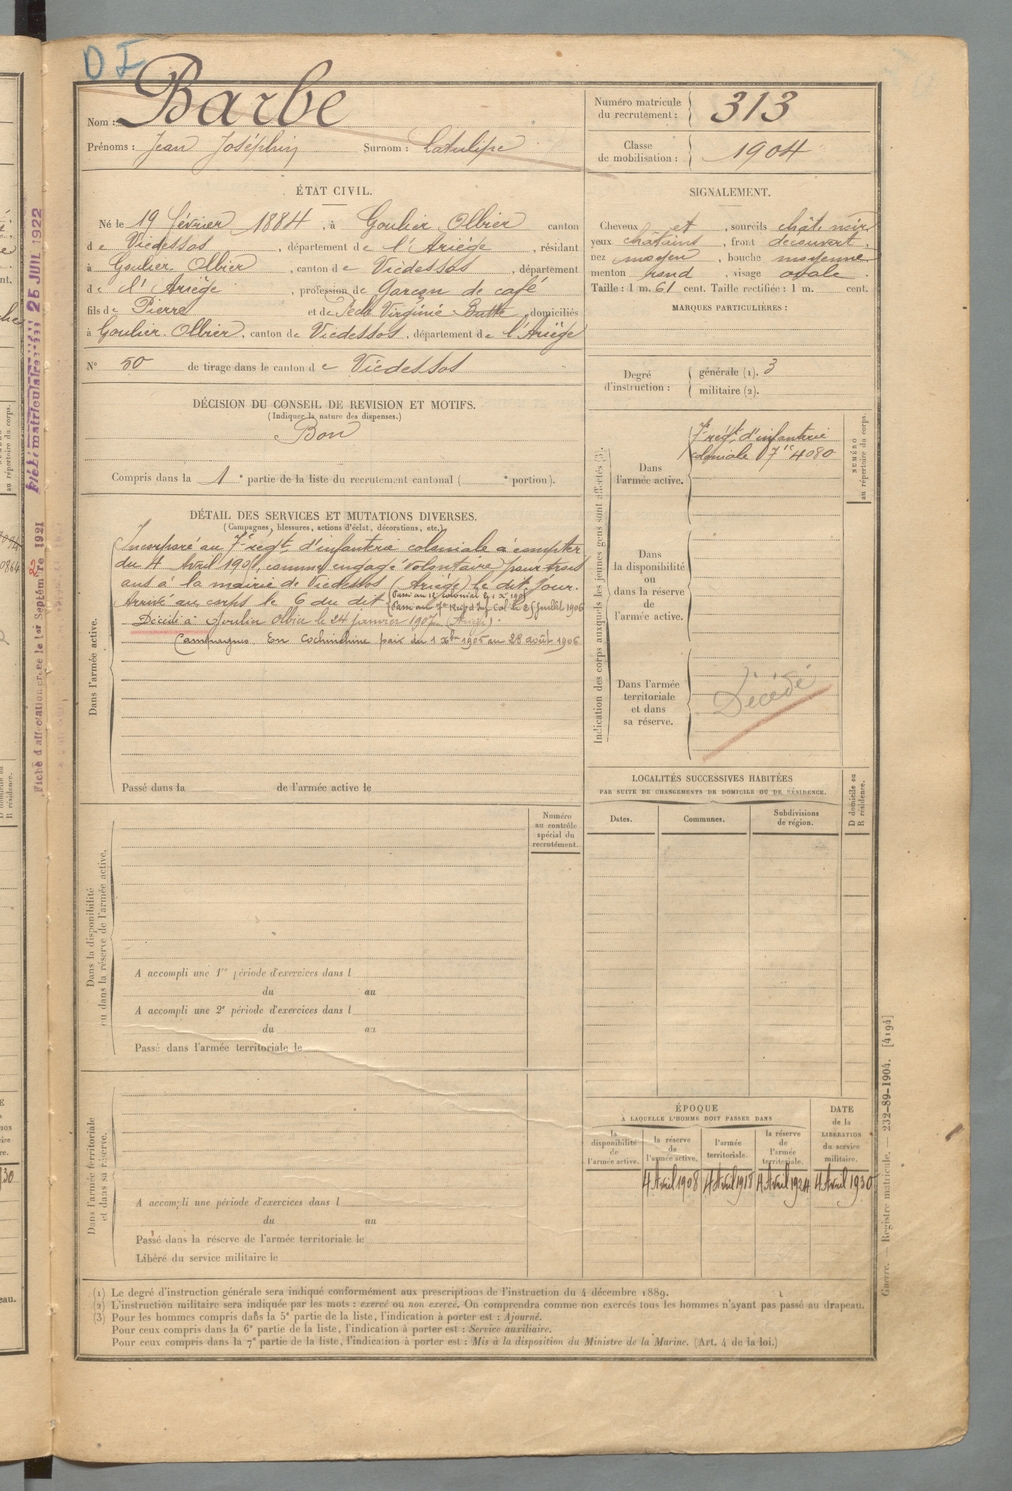 D I
Nom : Barbe
Prénoms : Jean Joséphin Surnom : Latulipe
Numéro matricule du recrutement : 313
Classe de mobilisation : 1904
ÉTAT CIVIL.
Né le 19 février 1884, à Goulier Olbier canton
de Vicdessos, département de l'Ariège, résidant
à Goulier Olbier, canton de Vicdessos, département
de l'Ariège, profession de Garçon de café
fils de Pierre et de Virginie domiciliés
à Goulier Olbier, canton de Vicdessos, département de l'Ariège
N° 50 de tirage dans le canton de Vicdessos
SIGNALEMENT.
Cheveux et, sourcils chât. noir
yeux chatains, front découvert,
nez moyen, bouche moyenne
menton rond, visage ovale
Taille : 1 m. 61 cent. Taille rectifiée : 1 m. cent.
MARQUES PARTICULIÈRES :
Degré d'instruction : générale (1). 3
militaire (2).
DÉCISION DU CONSEIL DE REVISION ET MOTIFS.
(Indiquer la nature des dispenses.)
Bon
Compris dans la 1e partie de la liste du recrutement cantonal ( e portion).
DÉTAIL DES SERVICES ET MUTATIONS DIVERSES.
(Campagnes, blessures, actions d'éclat, décorations, etc.)
Dans l'armée active.
Incorporé au 7e régt d'infanterie coloniale à compter
du 4 Avril 1905, comme engagé volontaire pour trois
ans à la mairie de Vicdessos (Ariège) le dit jour.
Arrivé au corps le 6 du dit
Décédé à Goulier Olbier le 24 janvier 1907 (Ariège).
Campagnes En Cochinchine paix du 1 Xbre 1905 au 28 août 1906
Passé dans la de l'armée active le
Indication des corps auxquels les jeunes gens sont affectés (3).
NUMÉRO au répertoire du corps.
Dans l'armée active.
7e régt d'infanterie
coloniale 4080
Dans la disponibilité ou dans la réserve de l'armée active.
Dans l'armée territoriale et dans sa réserve.
Décédé
LOCALITÉS SUCCESSIVES HABITÉES
PAR SUITE DE CHANGEMENTS DE DOMICILE OU DE RÉSIDENCE.
Dates.
Communes.
Subdivisions de région.
D domicile ou R résidence.
Numéro au contrôle spécial du recrutement.
Dans la disponibilité ou dans la réserve de l'armée active.
A accompli une 1re période d'exercices dans l
du au
A accompli une 2e période d'exercices dans l
du au
Passé dans l'armée territoriale le
Dans l'armée territoriale et dans sa réserve.
A accompli une période d'exercices dans l
du au
Passé dans la réserve de l'armée territoriale le
Libéré du service militaire le
ÉPOQUE
A LAQUELLE L'HOMME DOIT PASSER DANS
la disponibilité de l'armée active.
la réserve de l'armée active.
l'armée territoriale.
la réserve de l'armée territoriale.
DATE de la LIBÉRATION du service militaire.
4 Avril 1908
4 Avril 1918
4 Avril 1924
4 Avril 1930
(1) Le degré d'instruction générale sera indiqué conformément aux prescriptions de l'instruction du 4 décembre 1889.
(2) L'instruction militaire sera indiquée par les mots : exercé ou non exercé. On comprendra comme non exercés tous les hommes n'ayant pas passé au drapeau.
(3) Pour les hommes compris dans la 5e partie de la liste, l'indication à porter est : Ajourné.
Pour ceux compris dans la 6e partie de la liste, l'indication à porter est : Service auxiliaire.
Pour ceux compris dans la 7e partie de la liste, l'indication à porter est : Mis à la disposition du Ministre de la Marine. (Art. 4 de la loi.)
Guerre. — Registre matricule. — 232-89-1904. [4194]
25 JUIL 1922